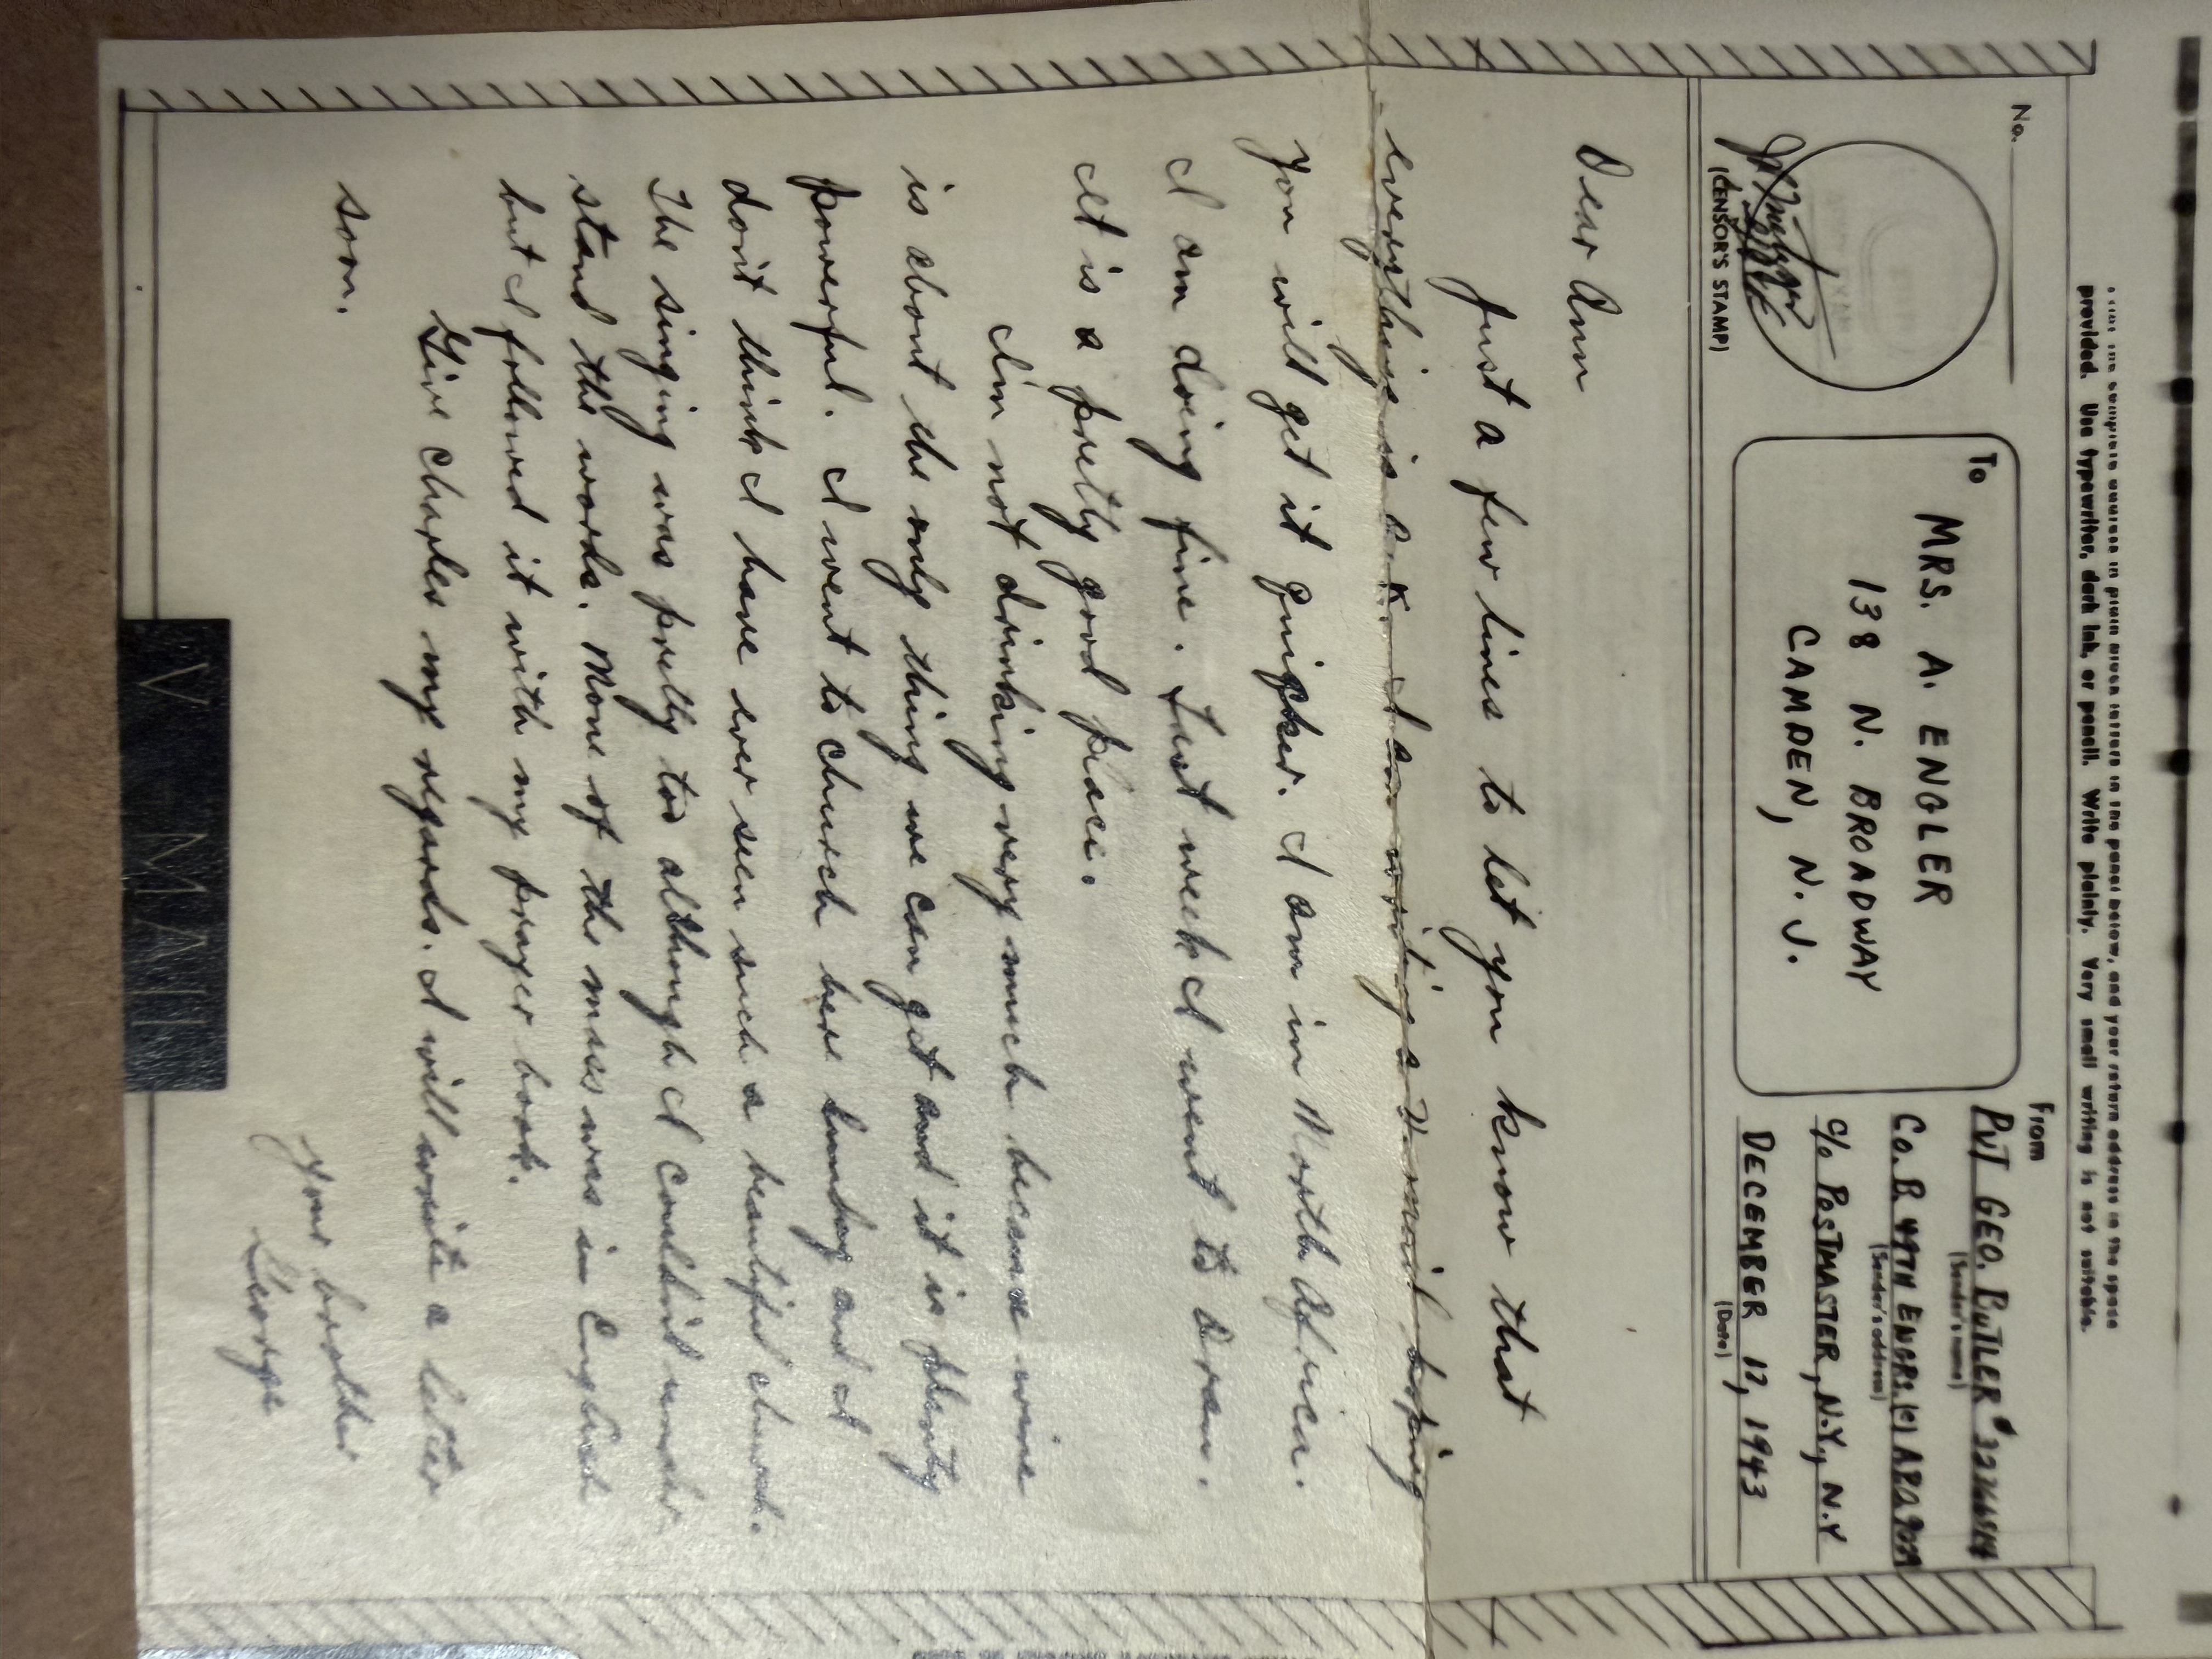 provided. Use typewriter, dark ink, or pencil. Write plainly. Very small writing is not suitable.
No.
(CENSOR'S STAMP)
To
MRS. A. ENGLER
138 N. BROADWAY
CAMDEN, N. J.
From
PVT GEO. BUTLER
(Sender's name)
Co. B 47TH ENGRS.
(Sender's address)
c/o POSTMASTER, N.Y., N.Y
DECEMBER 12, 1943
(Date)
Dear Ann
Just a few lines to let you know that
everything is o.k. I am writing a V-mail hoping
you will get it quicker. I am in North Africa.
I am doing fine. Last week I went to Oran.
It is a pretty good place.
I'm not drinking very much because wine
is about the only thing we can get and it is plenty
powerful. I went to church here Sunday and I
don't think I have ever seen such a beautiful church.
The singing was pretty too although I couldn't under
stand the words. None of the mass was in English
but I followed it with my prayer book.
Give Charles my regards. I will write a letter
soon.
Your brother
George
V···—MAIL